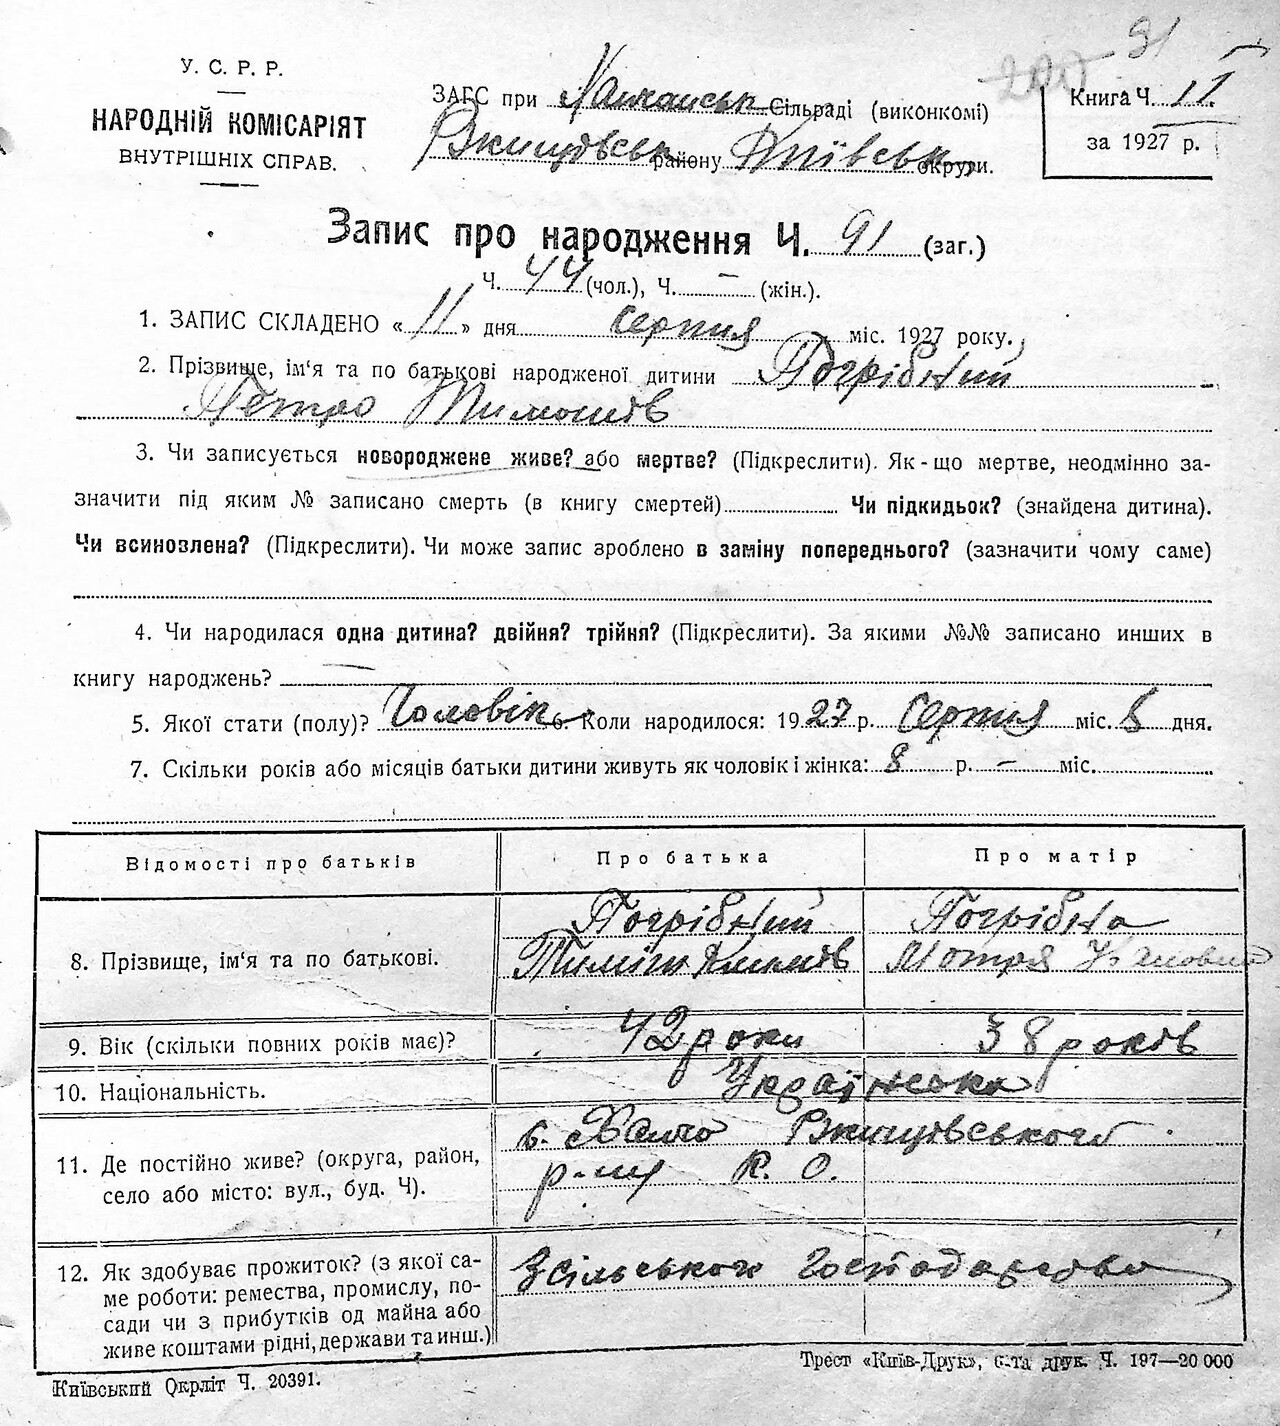 200 91
У. С. Р. Р.
НАРОДНІЙ КОМІСАРІЯТ
ВНУТРІШНІХ СПРАВ.
ЗАГС при Сільраді (виконкомі)
Ржищівськ району Київськ округи.
Книга Ч. II
за 1927 р.
Запис про народження Ч. 91 (заг.)
Ч. 44 (чол.), Ч. – (жін.).
1. ЗАПИС СКЛАДЕНО « 11 » дня серпня міс. 1927 року.
2. Прізвище, ім'я та по батькові народженої дитини Погрібний
Петро Тимошів
3. Чи записується новороджене живе? або мертве? (Підкреслити). Як-що мертве, неодмінно за-
значити під яким № записано смерть (в книгу смертей) Чи підкидьок? (знайдена дитина).
Чи всиновлена? (Підкреслити). Чи може запис зроблено в заміну попереднього? (зазначити чому саме)
4. Чи народилася одна дитина? двійня? трійня? (Підкреслити). За якими №№ записано инших в
книгу народжень?
5. Якої стати (полу)? Чоловік 6. Коли народилося: 1927 р. Серпня міс. дня.
7. Скільки років або місяців батьки дитини живуть як чоловік і жінка: 8 р. – міс.
Відомості про батьків Про батька Про матір
8. Прізвище, ім'я та по батькові. Погрібний Погрібна
Тиміш Мотря
9. Вік (скільки повних років має)? 42 роки 38 років
10. Національність. Українська
11. Де постійно живе? (округа, район,
село або місто: вул., буд. Ч).
с. Ржищівського
р-ну К. О.
12. Як здобуває прожиток? (з якої са-
ме роботи: ремества, промислу, по-
сади чи з прибутків од майна або
живе коштами рідні, держави та инш.)
З сільського господарства
Київський Окрліт Ч. 20391.
Трест «Київ-Друк», 6-та друк. Ч. 197—20 000